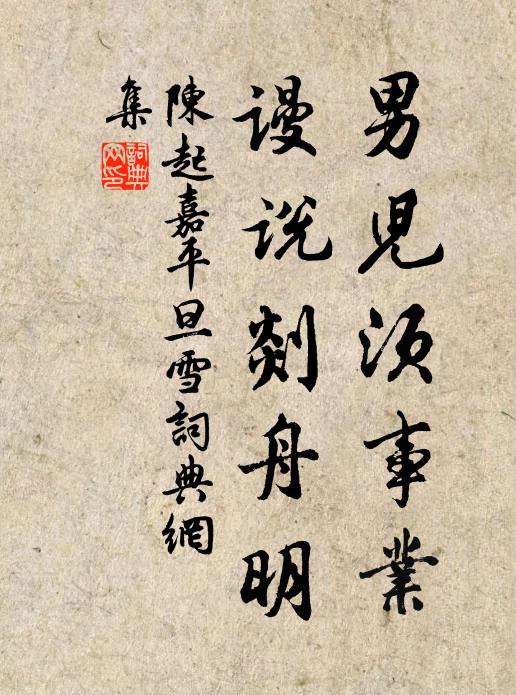 男兒須事業
謾説剡舟明
陳起嘉平旦雪詞典網
集
詞典
网印